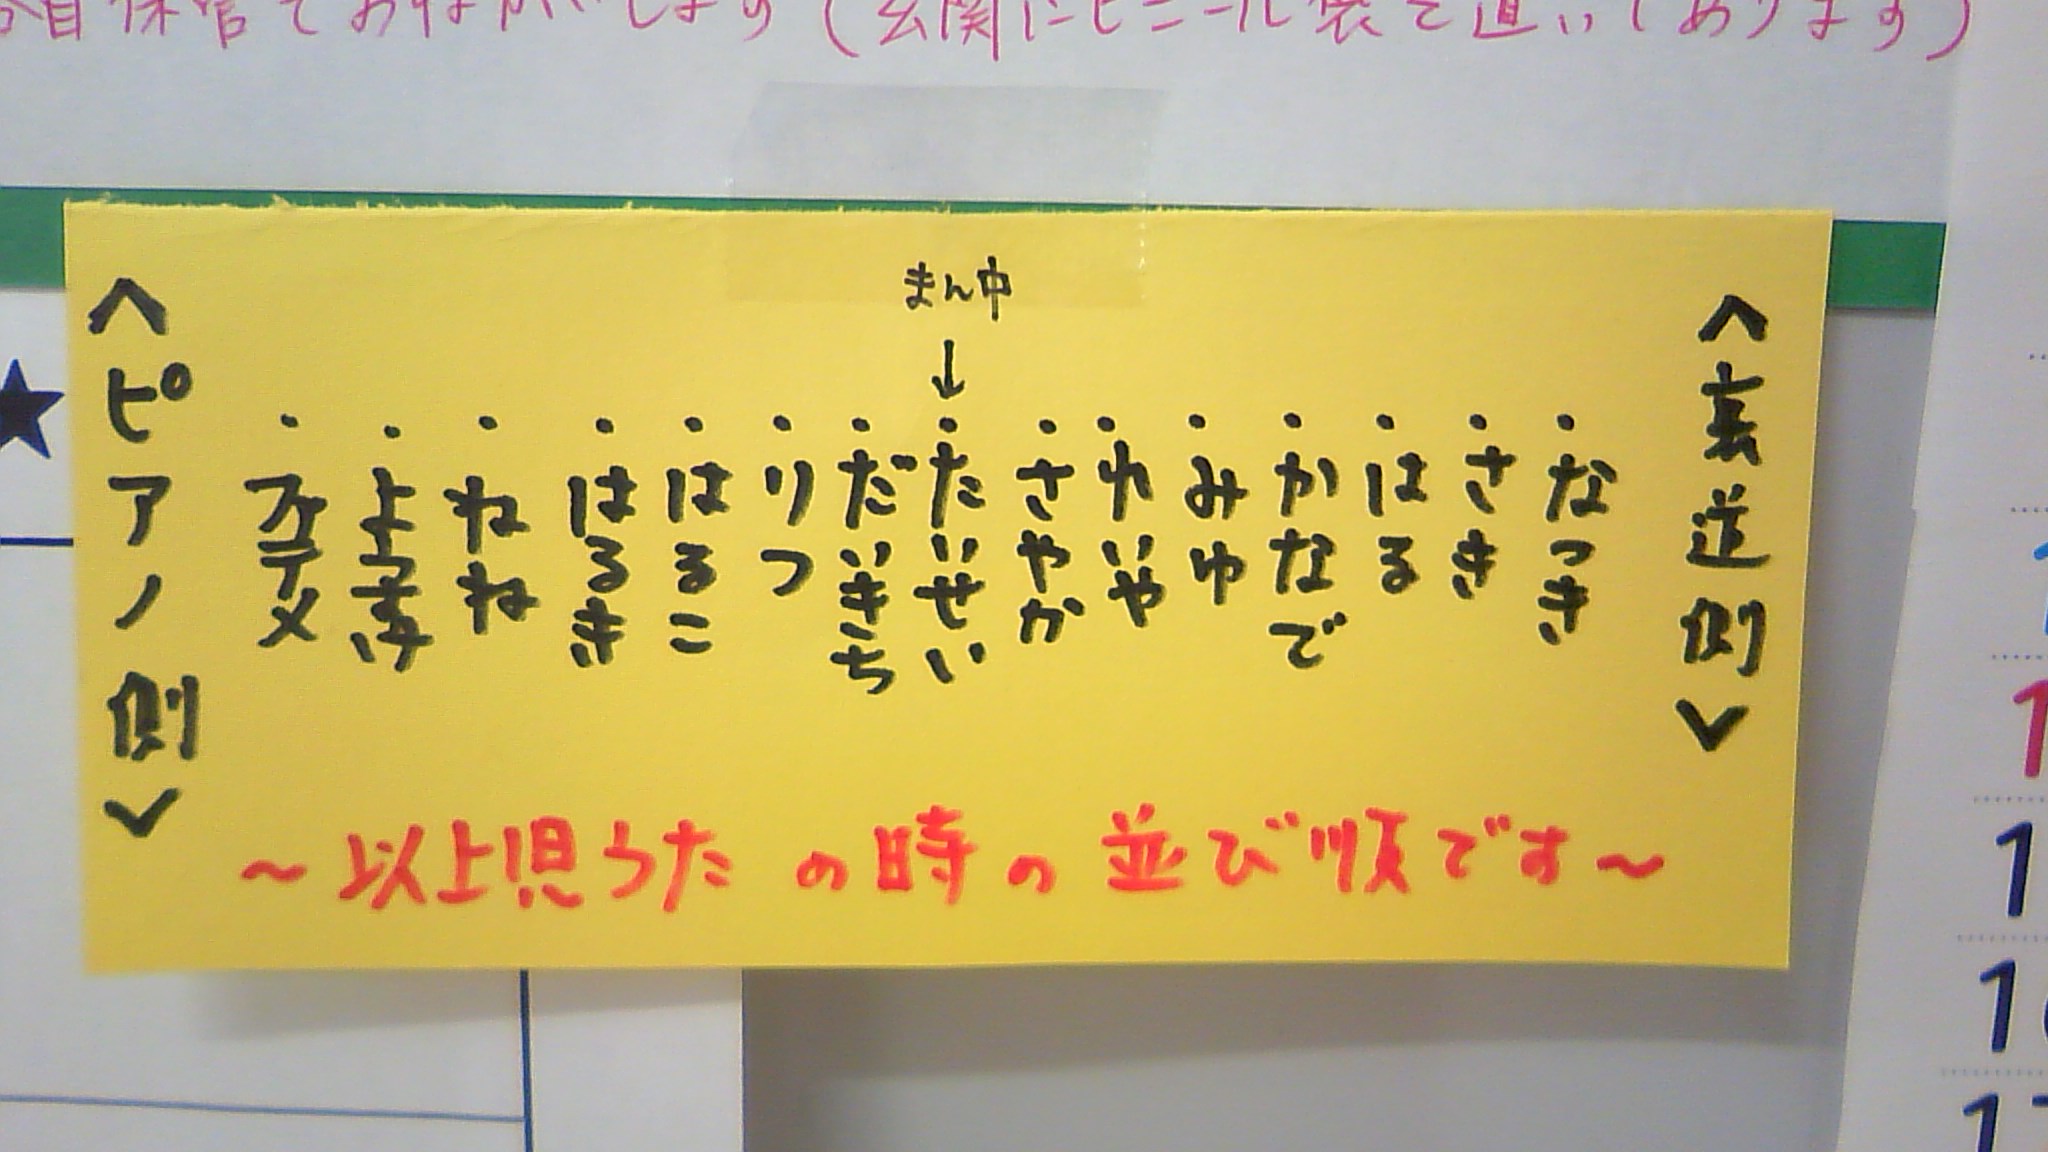 各自保管でおねがいします(玄関にビニール袋で置いてあります)
まん中
↓
<裏道側>
・なつき
・さき
・はる
・かなで
・みゆ
・れいや
・さやか
・たいせい
・だいきち
・りつ
・はるこ
・はるき
・ねね
・ようすけ
<ピアノ側>
～以上児うたの時の並び順です～